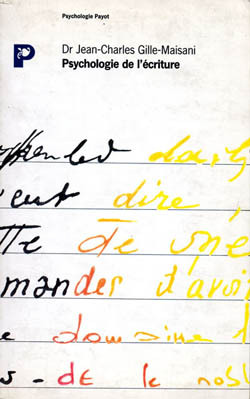 Psychologie Payot
P
Dr Jean-Charles Gille-Maisani
Psychologie de l'écriture
dire,
de une
mander et avoi
e domaine
s - de le nobl